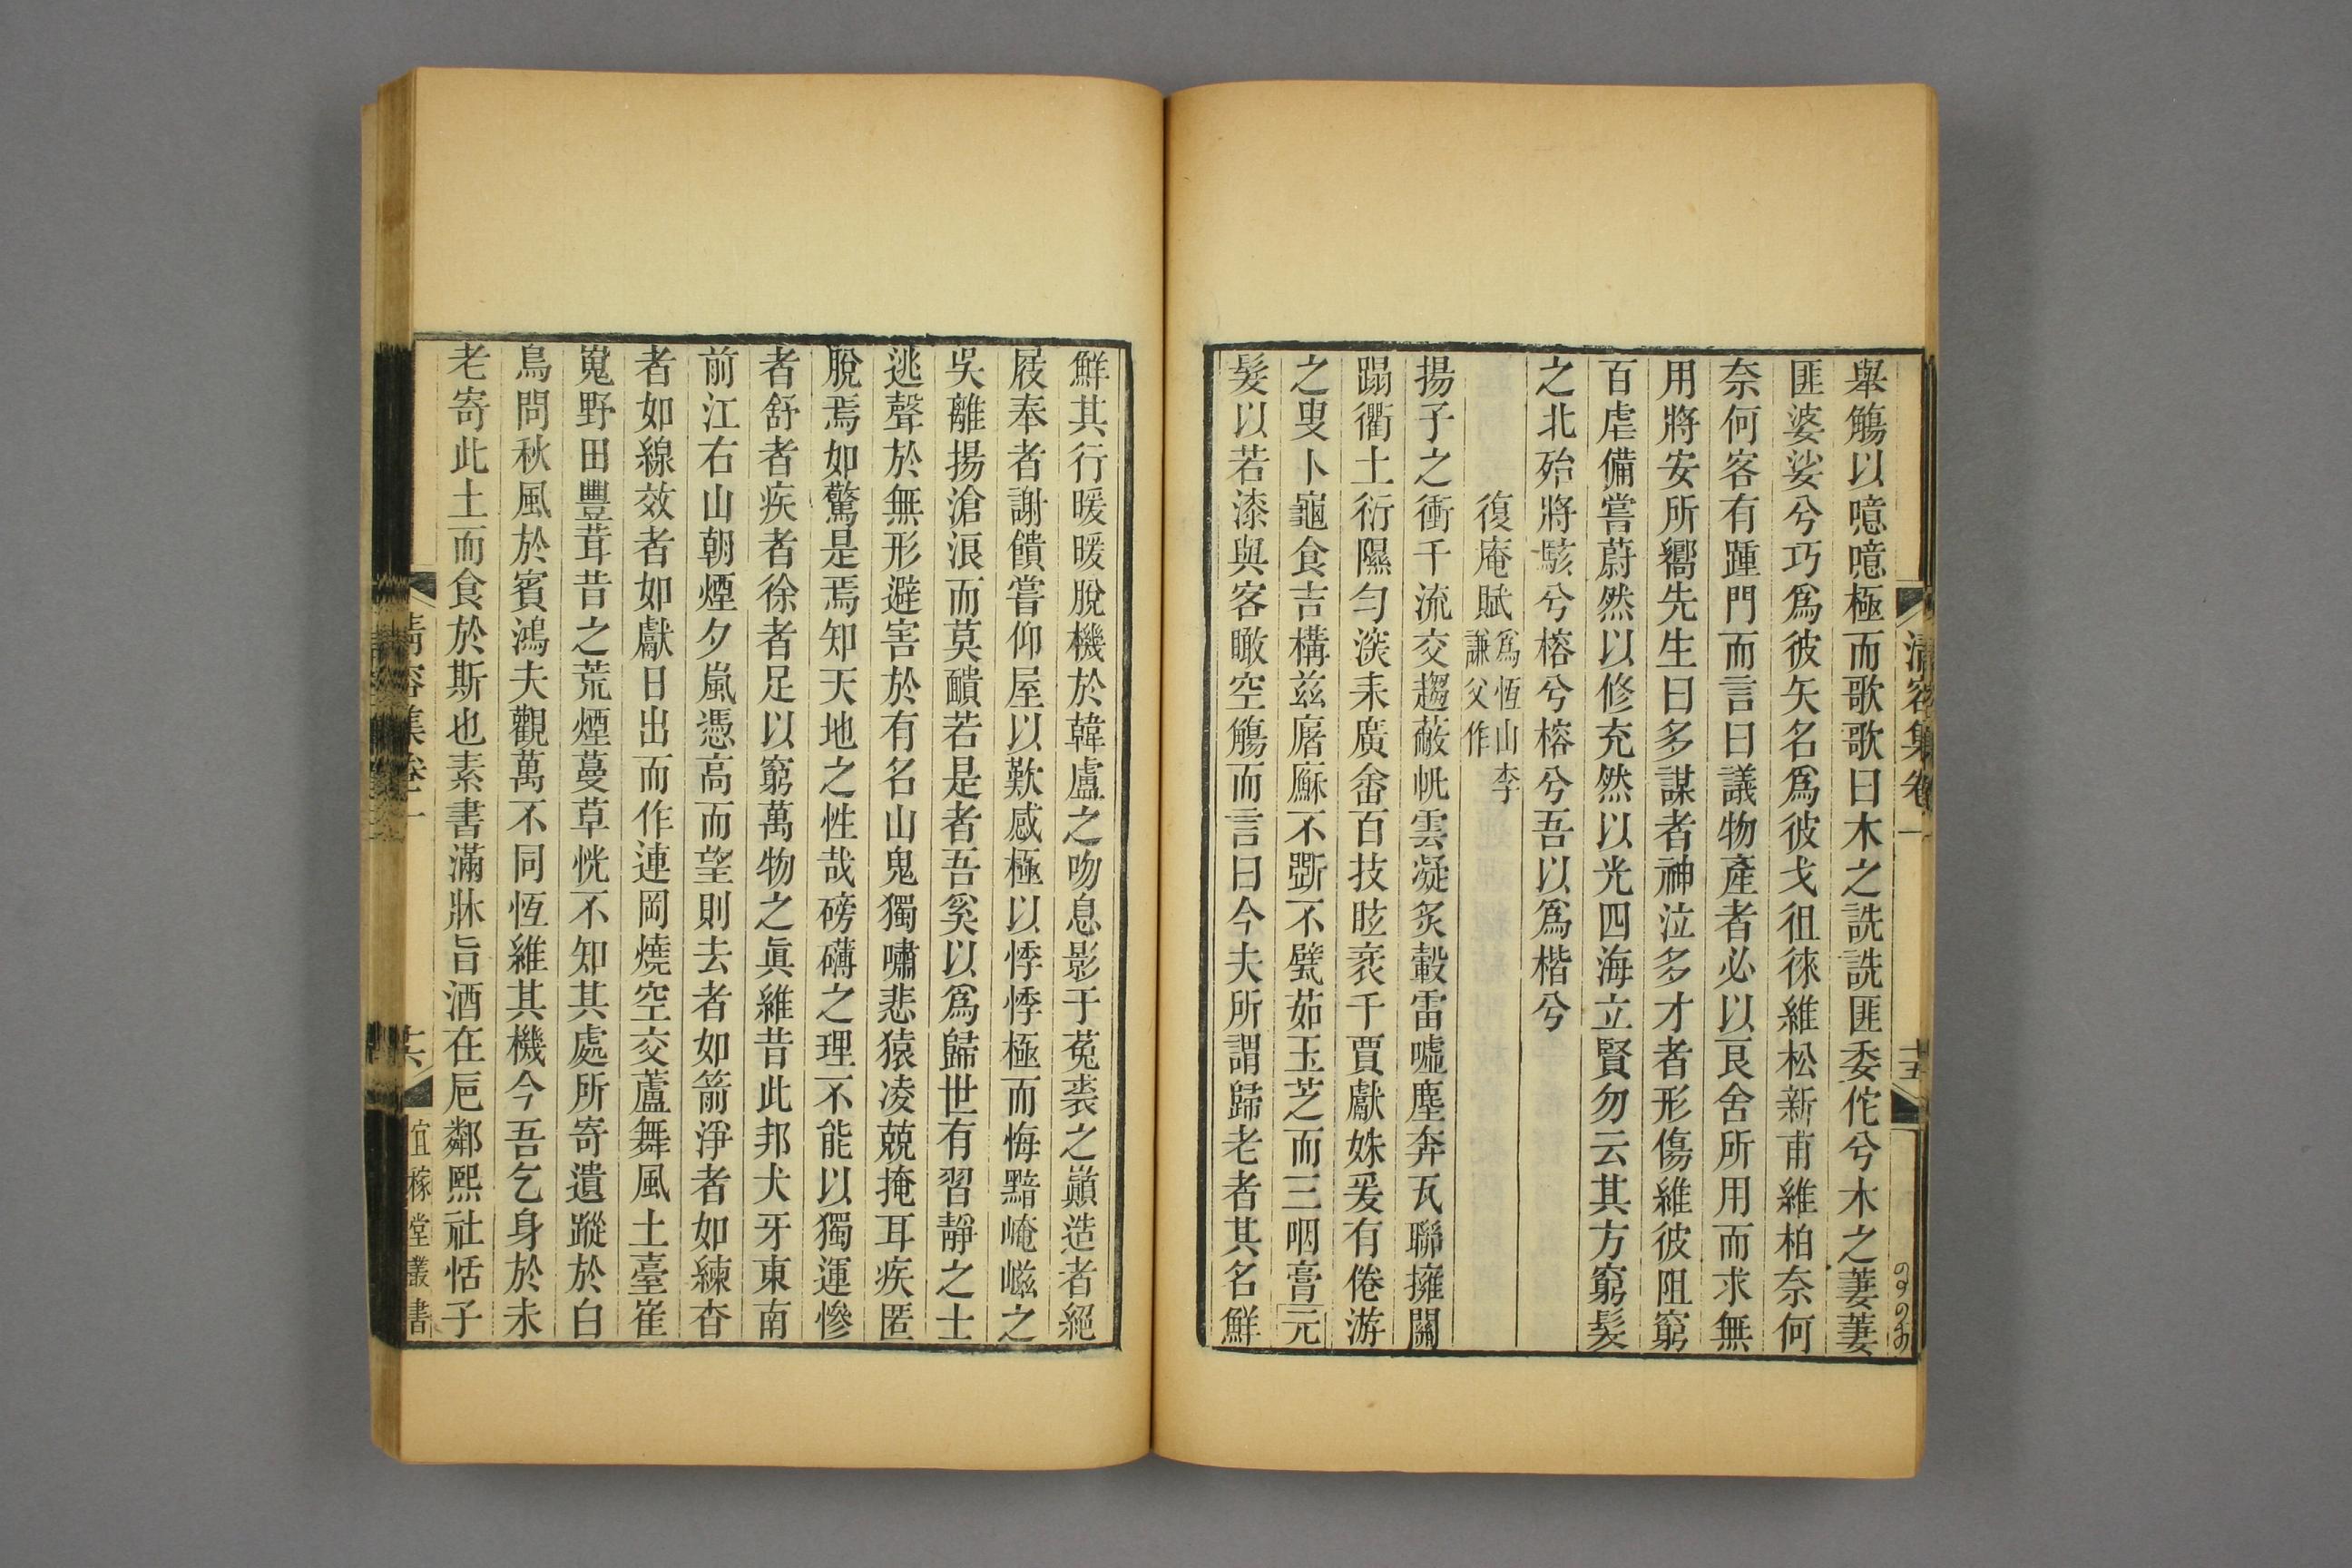 清容集卷一
十五
舉觴以噫噫極而歌歌曰木之詵詵匪委佗兮木之萋萋
匪婆娑兮巧爲彼矢名爲彼戈徂徠維松新甫維柏奈何
奈何客有踵門而言曰議物產者必以艮舍所用而求無
用將安所嚮先生曰多謀者神泣多才者形傷維彼阻窮
百虐備嘗蔚然以修充然以光四海立賢勿云其方窮髮
之北殆將駭兮榕兮榕兮吾以爲楷兮
復庵賦爲恆山李謙父作
揚子之衝千流交趨蔽帆雲凝炙轂雷噓塵奔瓦聯擁闤
蹋衢土衍隰勻深耒廣畬百技眩袤千賈獻姝爰有倦游
之叟卜龜食吉構茲廜㢝不斲不甓茹玉芝而三咽膏元
髮以若漆與客瞰空觴而言曰今夫所謂歸老者其名鮮
鮮其行暖暖脫機於韓盧之吻息影于菟裘之巔造者絕
屐奉者謝饋嘗仰屋以歎感極以悸悸極而悔黯崦嵫之
吳離揚滄浪而莫酹若是者吾奚以爲歸世有習靜之士
逃聲於無形避害於有名山鬼獨嘯悲猿凌兢掩耳疾匿
脫焉如驚是焉知天地之性哉磅礴之理不能以獨運慘
者舒者疾者徐者足以窮萬物之眞維昔此邦犬牙東南
前江右山朝煙夕嵐憑高而望則去者如箭淨者如練杳
者如線效者如獻日出而作連岡燒空交蘆舞風土臺崔
嵬野田豐茸昔之荒煙蔓草恍不知其處所寄遺蹤於白
鳥問秋風於賓鴻夫觀萬不同恆維其機今吾乞身於未
老寄此土而食於斯也素書滿牀旨酒在卮鄰熙社恬子
清容集卷一
十六
宜稼堂叢書